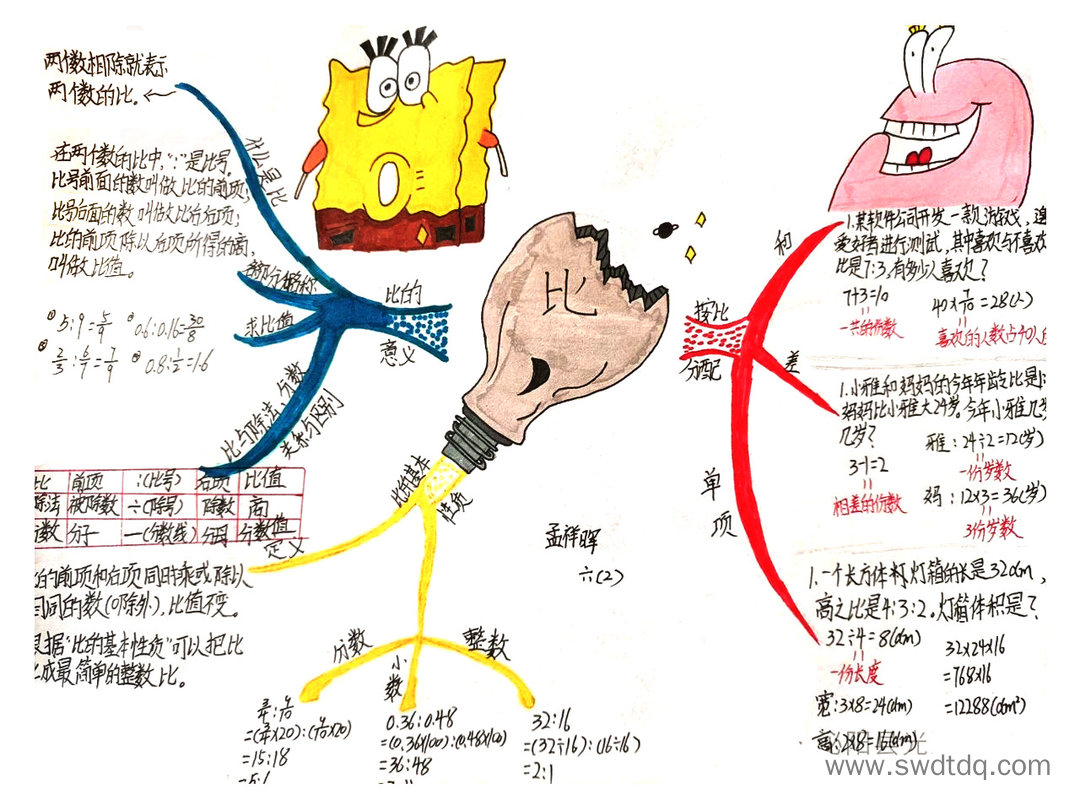 两个数相除就表示
两个数的比。←
什么是比
在两个数的比中,":"是比号。
比号前面的数叫做比的前项;
比号后面的数叫做比的后项;
比的前项除以后项所得的商,
叫做比值。
各部分名称
求比值
① 5:9=5/9 ③ 0.6:0.16=30/8
② 2/3:6/7=7/9 ④ 0.8:1/2=1.6
比与除法、分数
关系与区别
比的
意义
比
比 前项 :(比号) 后项 比值
除法 被除数 ÷(除号) 除数 商
数 分子 —(分数线) 分母 分数值
比的基本
性质
定义
的前项和后项同时乘或除以
同的数(0除外),比值不变。
根据"比的基本性质"可以把比
成最简单的整数比。
分数
小数
整数
=(3/4×20):(9/10×20)
=15:18
=5:6
0.36:0.48
=(0.36×100):(0.48×100)
=36:48
32:16
=(32÷16):(16÷16)
=2:1
孟祥晖
六(2)
按比
分配
和
差
单项
1.某软件公司开发一款游戏,
爱好者进行测试,其中喜欢与不喜欢
比是7:3,有多少人喜欢?
7+3=10
一共的份数
40×7/10=28(人)
喜欢的人数占40人的
1.小雅和妈妈的今年年龄比是
妈妈比小雅大24岁。今年小雅几岁
几岁?
雅:24÷2=12(岁)
一份岁数
3-1=2
相差的份数
妈:12×3=36(岁)
3份岁数
1.一个长方体 灯箱的长是32dm,
高之比是4:3:2。灯箱体积是?
32÷4=8(dm)
一份长度
32×24×16
=768×16
=12288(dm³)
宽:3×8=24(dm)
高:2×8=16(dm)
www.swdtdq.com